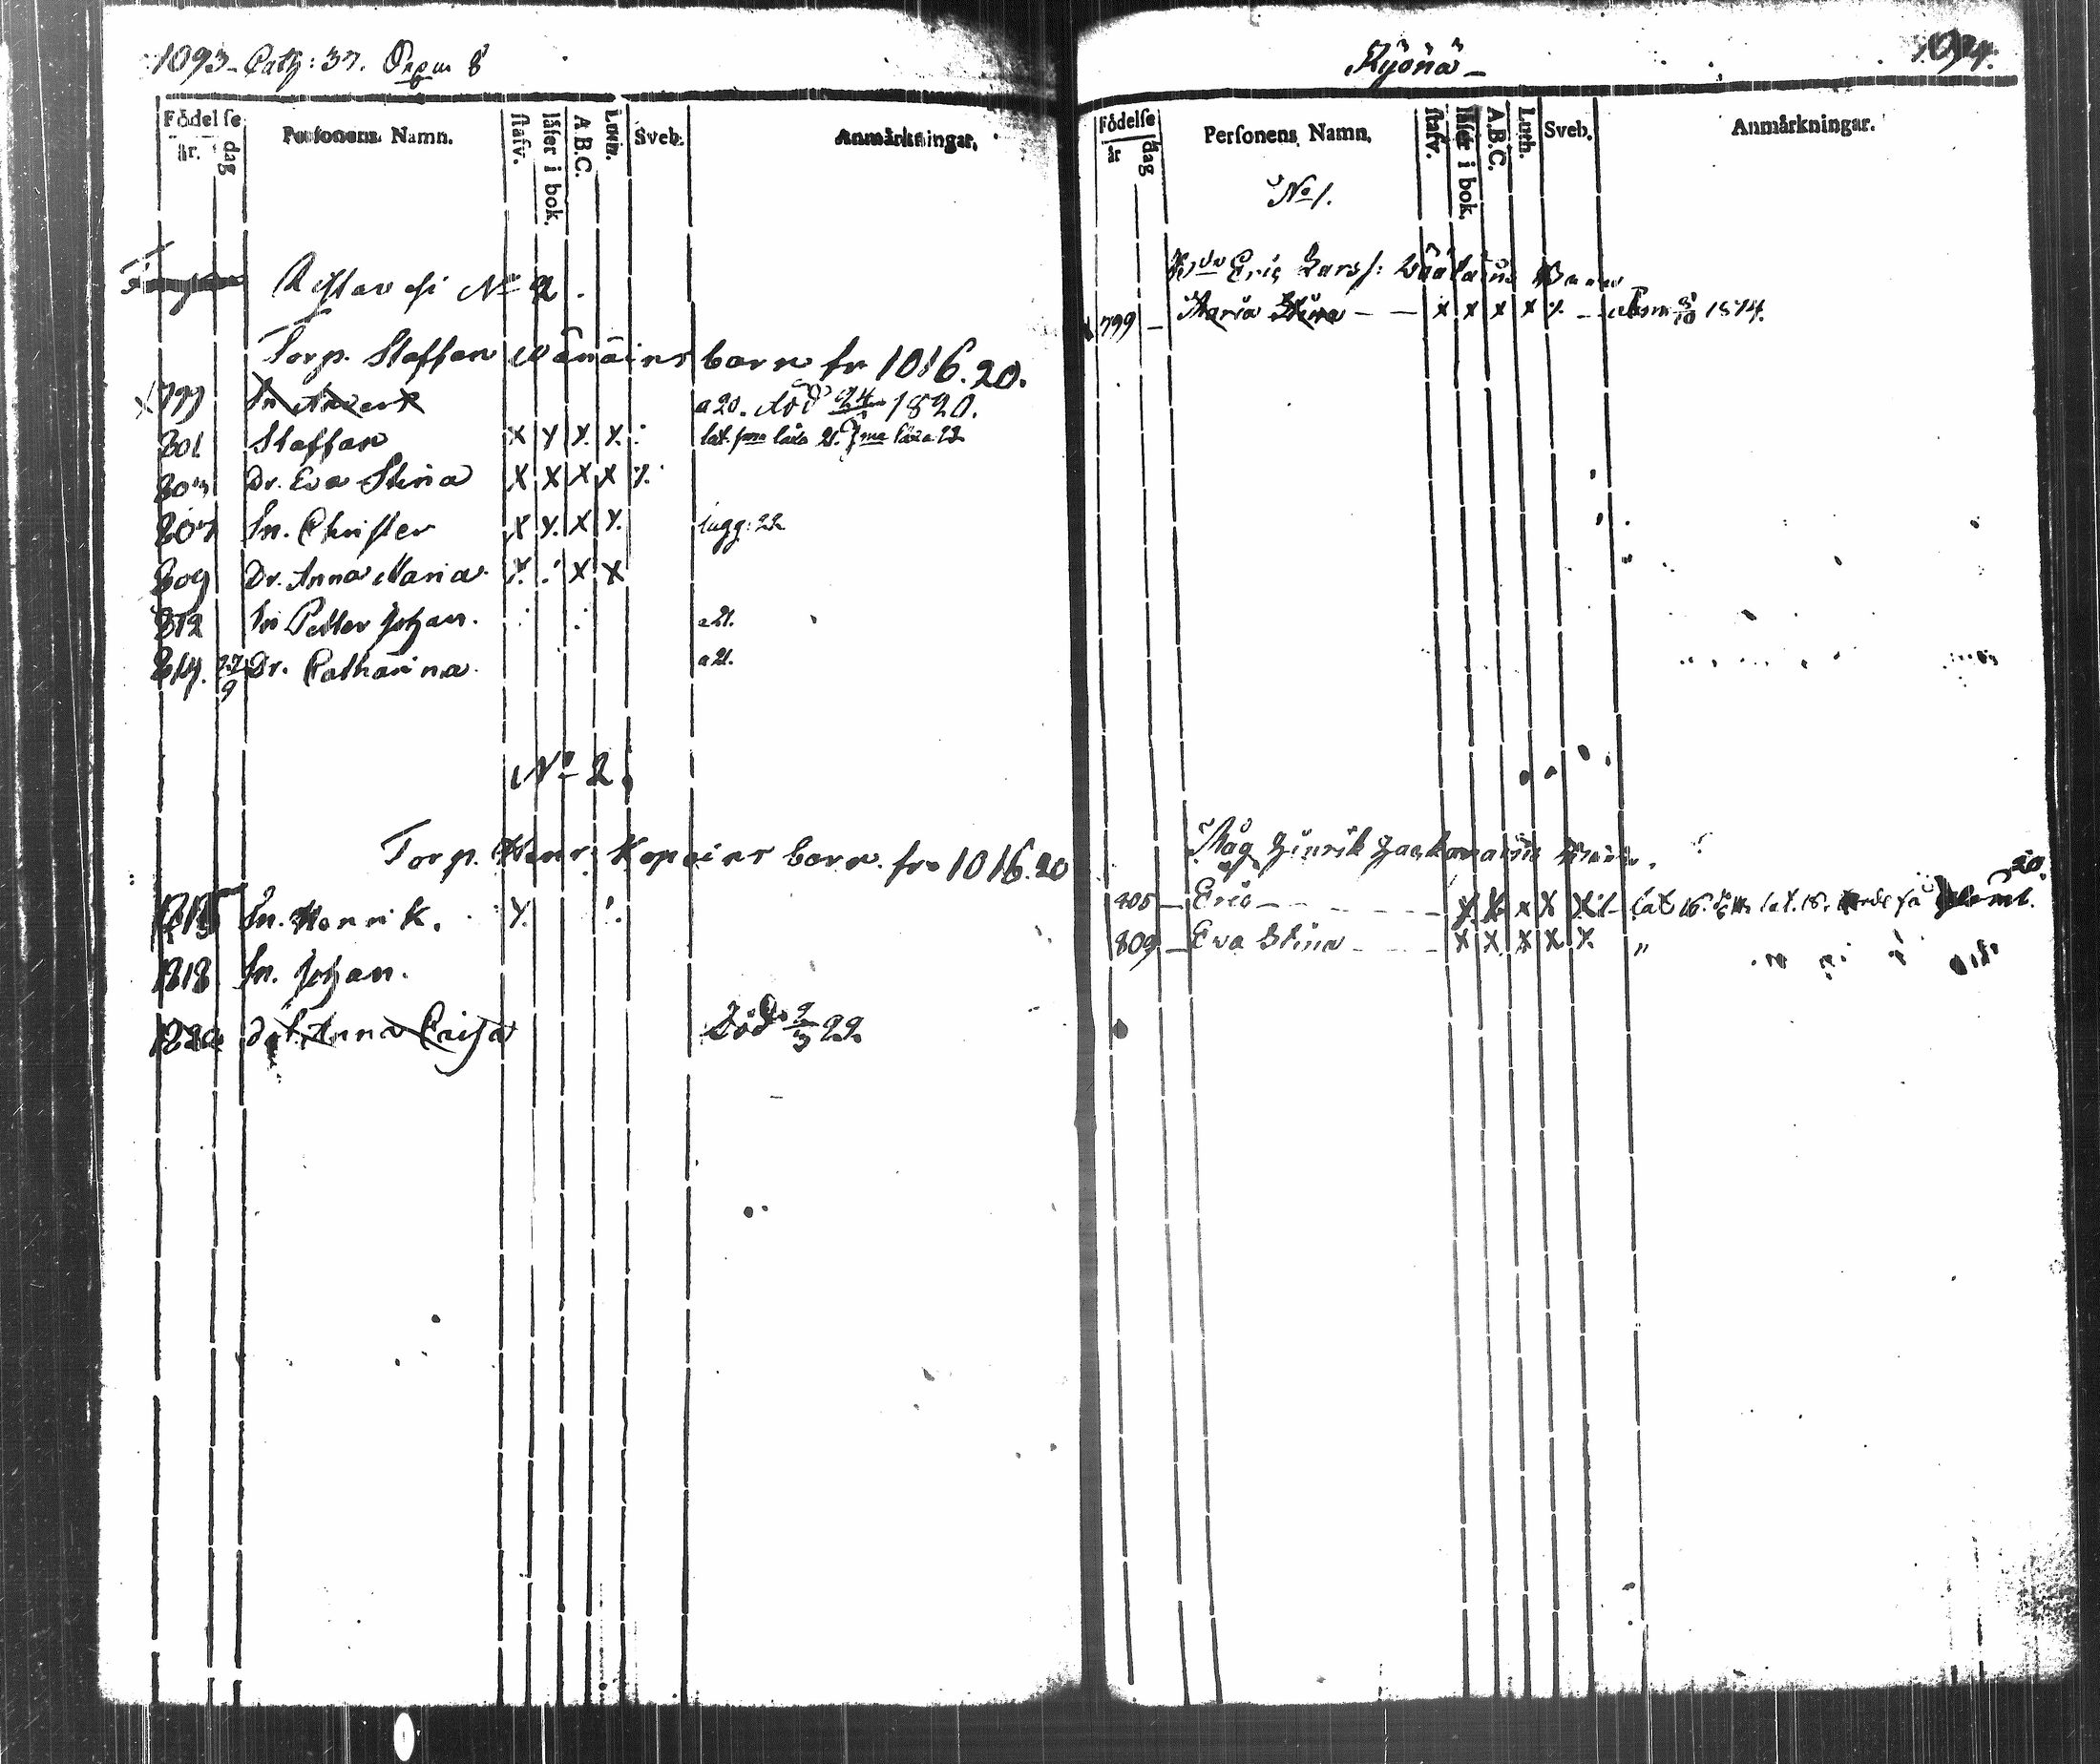 1093. Cath: 37. Orpm 8
Födelse
år. dag Personens Namn. stafv. läser i bok. A.B.C. Luth. Sveb. Anmärkningar.
Ristavesi No 2.
Torp. Staffan Wänäins barn fr 1016.20.
799 Sn Anders a 20. död 24 1820.
801 Staffan x x x x
803 Dr. Eva Stina x x x x
807 Sn. Christer x x x x lagg: 22
809 Dr. Anna Maria x x x
812 Sn Petter Johan. a 21.
814. 27/9 Dr. Catharina. a 21.
No 2.
Torp. Henr. Kopoins barn. fr 1016.20
1815 Sn. Henrik. x
1818 Sn. Johan.
1820 Anna Caisa Död 2/3 22
Kyönä 1094.
Födelse
år dag Personens Namn. stafv. läser i bok. A.B.C. Luth. Sveb. Anmärkningar.
No 1.
Eric Larss: Barn
799 — Maria Stina — — x x x x 1814.
Måg Hinrik
805 — Eric x x x x x lat 16. lat. 18. 20.
809 — Eva Stina x x x x x "